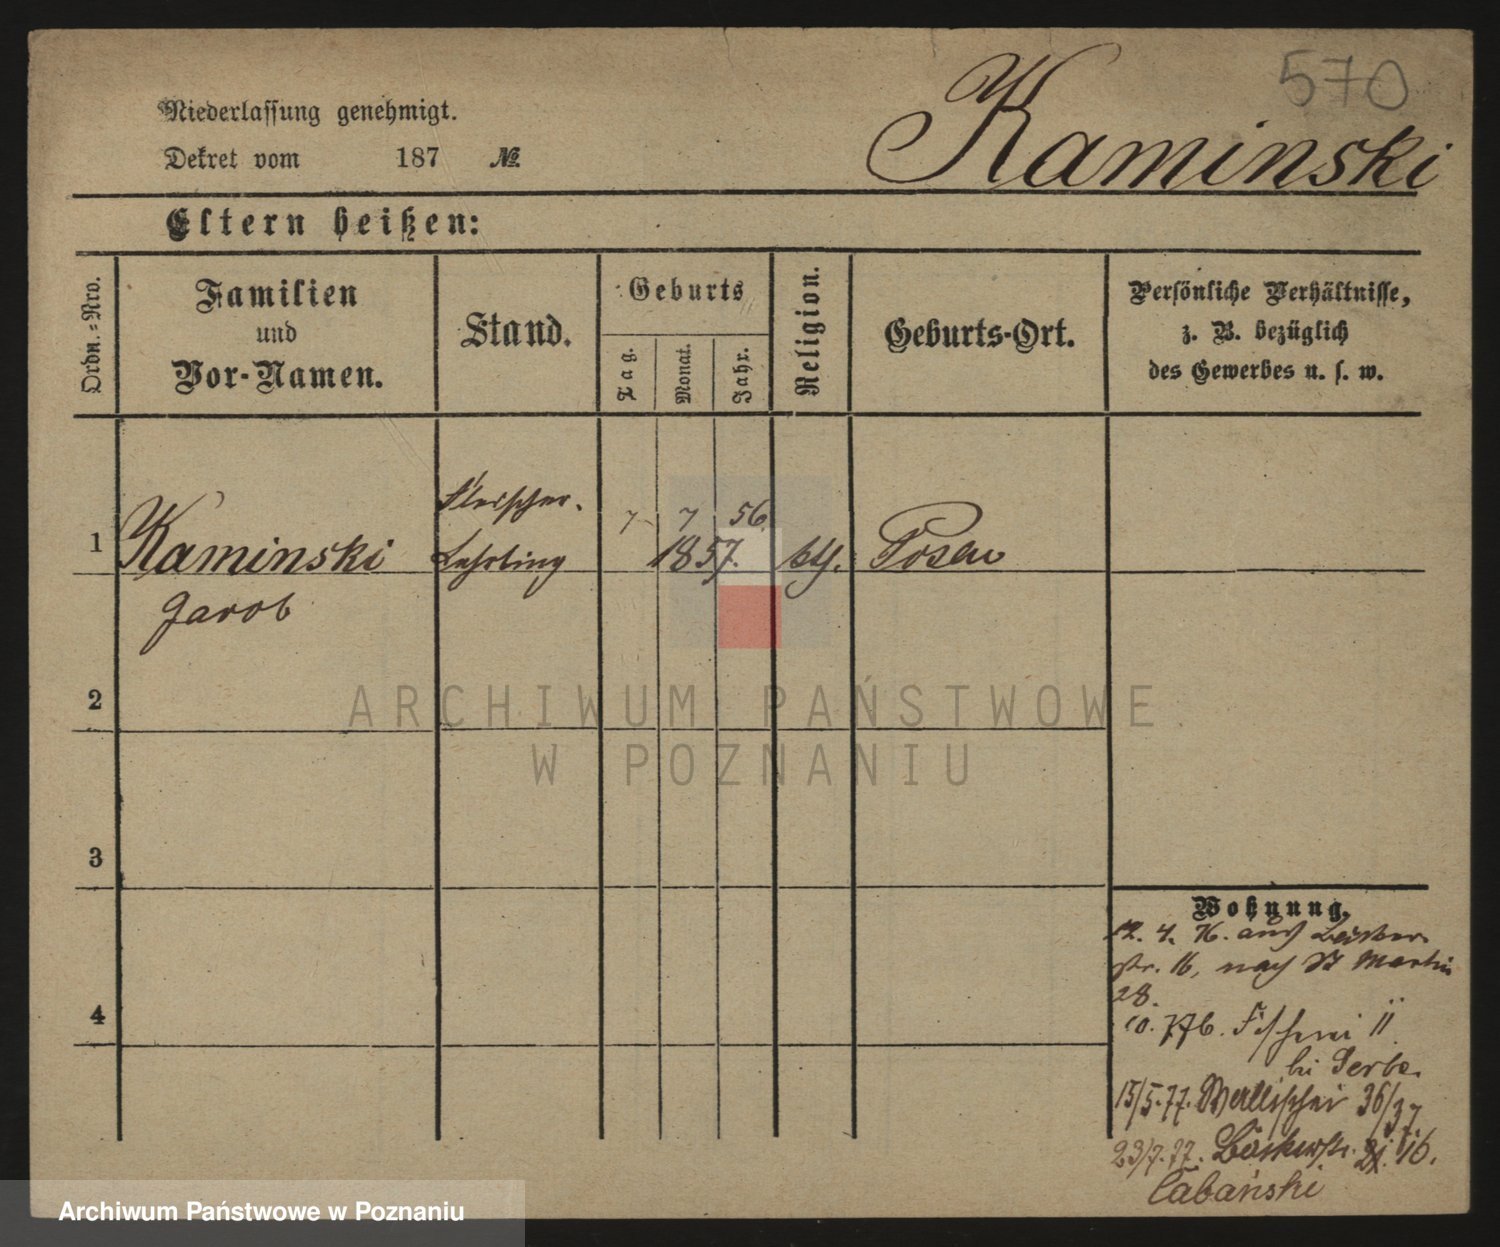 570
Niederlassung genehmigt.
Kaminski
Dekret vom 187 №
Eltern heißen:
Ordn.=Nro.
Familien
und
Vor-Namen.
Stand.
Geburts
Tag.
Monat.
Jahr.
Religion.
Geburts-Ort.
Persönliche Verhältnisse,
z. B. bezüglich
des Gewerbes u. s. w.
Fleischer.
7 7 56
1 Kaminski Lehrling 1857. kth. Posen
Jacob
2
3
4
Wohnung.
12. 4. 76. aus Bäcker
str. 16, nach St Martin
28.
10. 7 76. Fischerei 11
bei Serbe.
15/5.77. Wallischei 36/37
23/7.77. Bäckerstr. 21. 16.
Cabański
ARCHIWUM PAŃSTWOWE
W POZNANIU
Archiwum Państwowe w Poznaniu